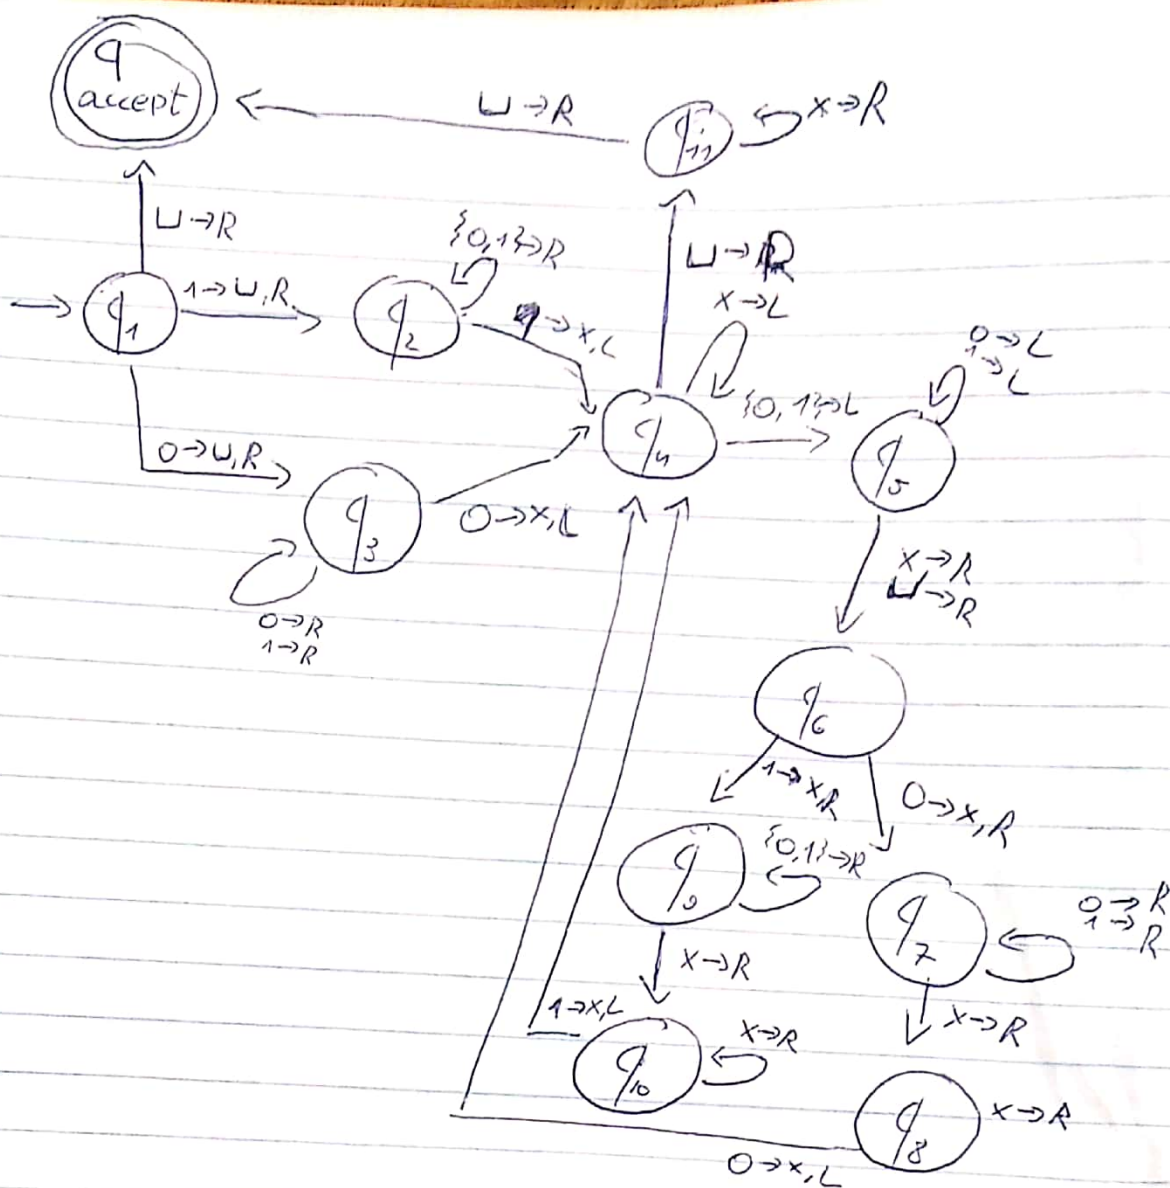 q
accept
⊔→R
q11
x→R
⊔→R
{0,1}→R
⊔→R
x→L
q1
1→⊔,R
q2
→x,L
0→L
1→L
q4
{0,1}→L
q5
0→⊔,R
q3
0→x,L
0→R
1→R
x→R
⊔→R
q6
1→x,R
0→x,R
q9
{0,1}→R
q7
0→R
1→R
x→R
x→R
1→x,L
q10
x→R
q8
x→R
0→x,L